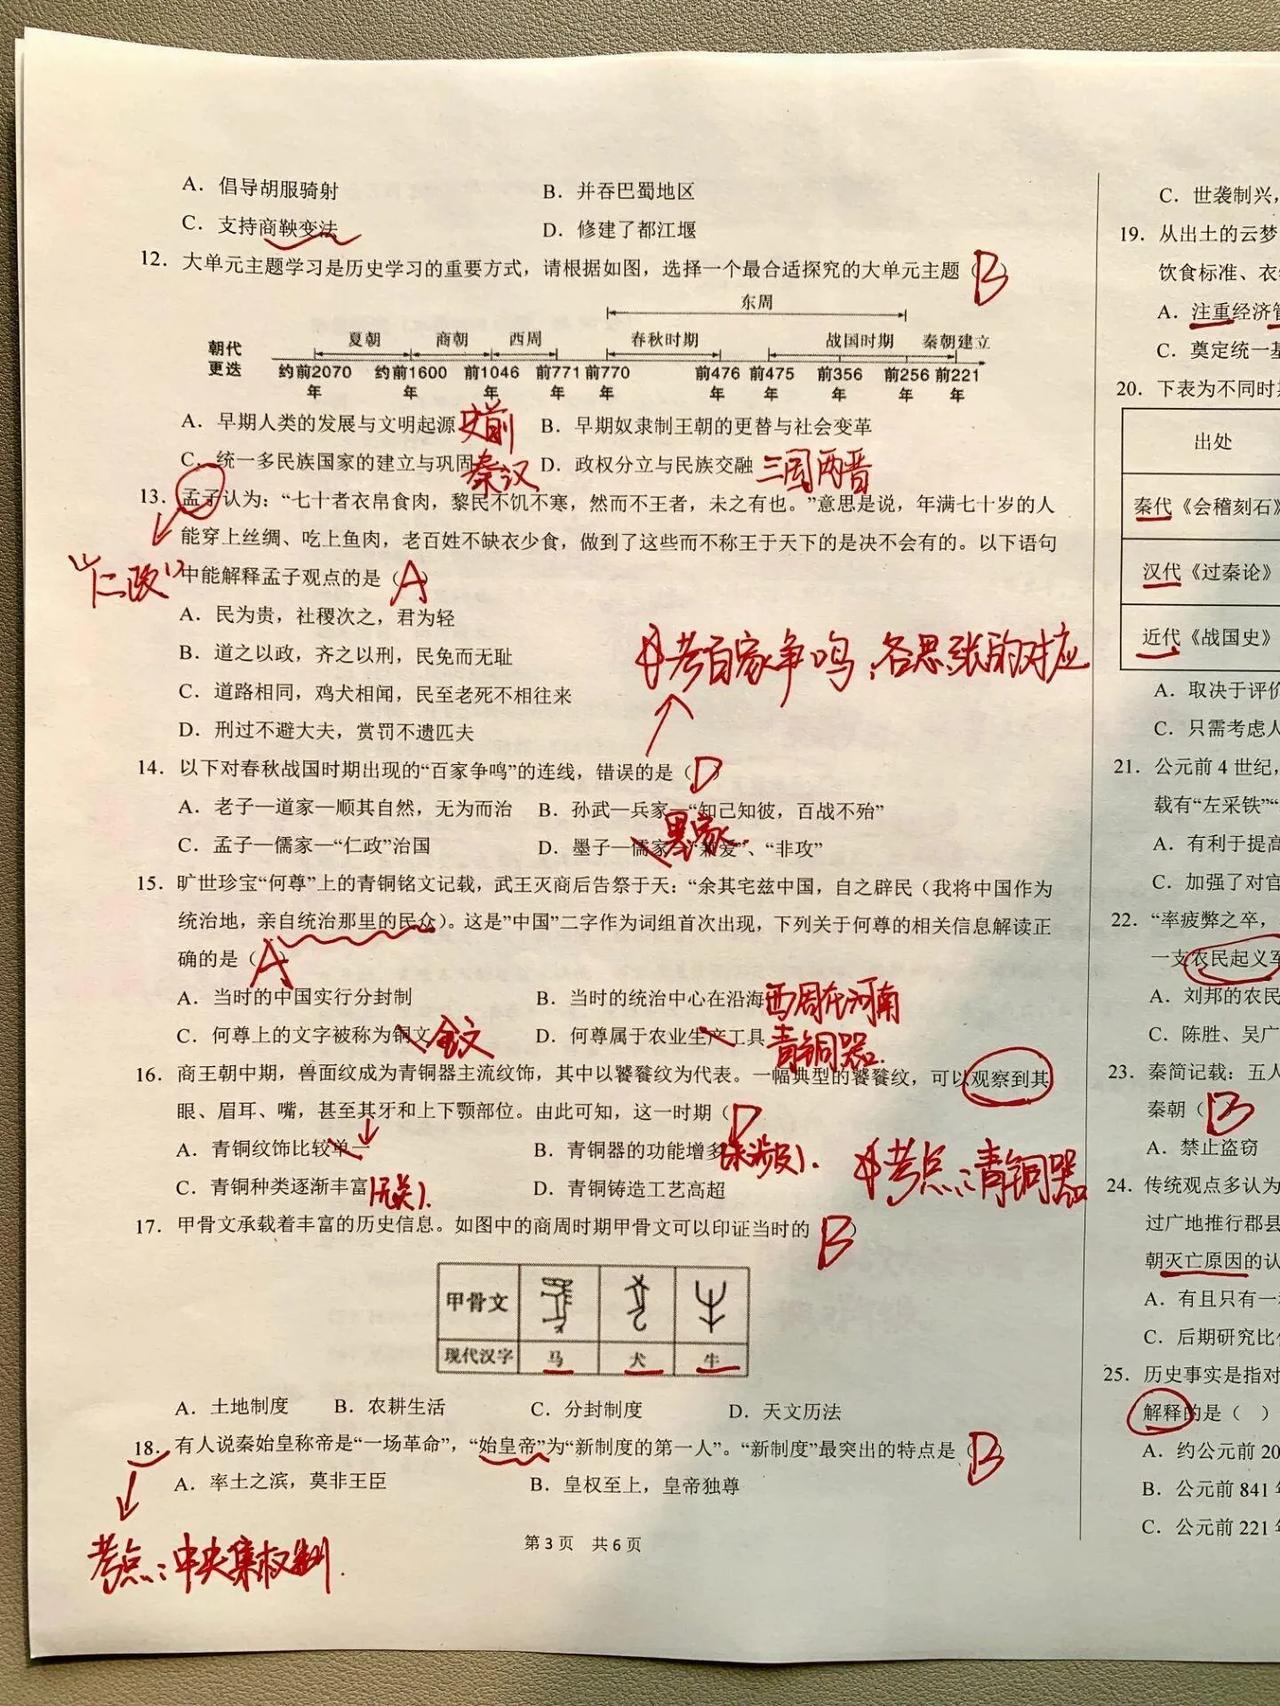 A．倡导胡服骑射 B．并吞巴蜀地区
C．支持商鞅变法 D．修建了都江堰
12．大单元主题学习是历史学习的重要方式，请根据如图，选择一个最合适探究的大单元主题（B）
东周
夏朝 商朝 西周 春秋时期 战国时期 秦朝建立
朝代更迭
约前2070年 约前1600年 前1046年 前771年 前770年 前476年 前475年 前356年 前256年 前221年
A．早期人类的发展与文明起源 史前 B．早期奴隶制王朝的更替与社会变革
C．统一多民族国家的建立与巩固 秦汉 D．政权分立与民族交融 三国两晋
13．孟子认为：“七十者衣帛食肉，黎民不饥不寒，然而不王者，未之有也。”意思是说，年满七十岁的人
能穿上丝绸、吃上鱼肉，老百姓不缺衣少食，做到了这些而不称王于天下的是决不会有的。以下语句
“仁政”
中能解释孟子观点的是（A）
A．民为贵，社稷次之，君为轻
B．道之以政，齐之以刑，民免而无耻
考百家争鸣、各思张的对应
C．道路相同，鸡犬相闻，民至老死不相往来
D．刑过不避大夫，赏罚不遗匹夫
14．以下对春秋战国时期出现的“百家争鸣”的连线，错误的是（D）
A．老子—道家—顺其自然，无为而治 B．孙武—兵家—“知己知彼，百战不殆”
墨家
C．孟子—儒家—“仁政”治国 D．墨子—儒家—“兼爱”、“非攻”
15．旷世珍宝“何尊”上的青铜铭文记载，武王灭商后告祭于天：“余其宅兹中国，自之辟民（我将中国作为
统治地，亲自统治那里的民众）。这是”中国”二字作为词组首次出现，下列关于何尊的相关信息解读正
确的是（A）
A．当时的中国实行分封制 B．当时的统治中心在沿海 西周在河南
C．何尊上的文字被称为铜文 金文 D．何尊属于农业生产工具 青铜器.
16．商王朝中期，兽面纹成为青铜器主流纹饰，其中以饕餮纹为代表。一幅典型的饕餮纹，可以观察到其
眼、眉耳、嘴，甚至其牙和上下颚部位。由此可知，这一时期（D
A．青铜纹饰比较单一 B．青铜器的功能增多 未涉及).
考点:青铜器
C．青铜种类逐渐丰富 (无关). D．青铜铸造工艺高超
17．甲骨文承载着丰富的历史信息。如图中的商周时期甲骨文可以印证当时的 B
甲骨文
现代汉字 马 犬 牛
A．土地制度 B．农耕生活 C．分封制度 D．天文历法
18．有人说秦始皇称帝是“一场革命”，“始皇帝”为“新制度的第一人”。“新制度”最突出的特点是（B
A．率土之滨，莫非王臣 B．皇权至上，皇帝独尊
考点:中央集权制.
第 3 页 共 6 页
C．世袭制兴，
19．从出土的云梦
饮食标准、衣
A．注重经济
C．奠定统一
20．下表为不同时
出处
秦代《会稽刻石》
汉代《过秦论》
近代《战国史》
A．取决于评价
C．只需考虑
21．公元前 4 世纪，
载有“左采铁”“
A．有利于提高
C．加强了对官
22．“率疲弊之卒，
一支农民起义军
A．刘邦的农民
C．陈胜、吴广
23．秦简记载：五人
秦朝（B
A．禁止盗窃
24．传统观点多认为
过广地推行郡县
朝灭亡原因的认
A．有且只有一
C．后期研究比
25．历史事实是指对
解释的是（ ）
A．约公元前 20
B．公元前 841
C．公元前 221